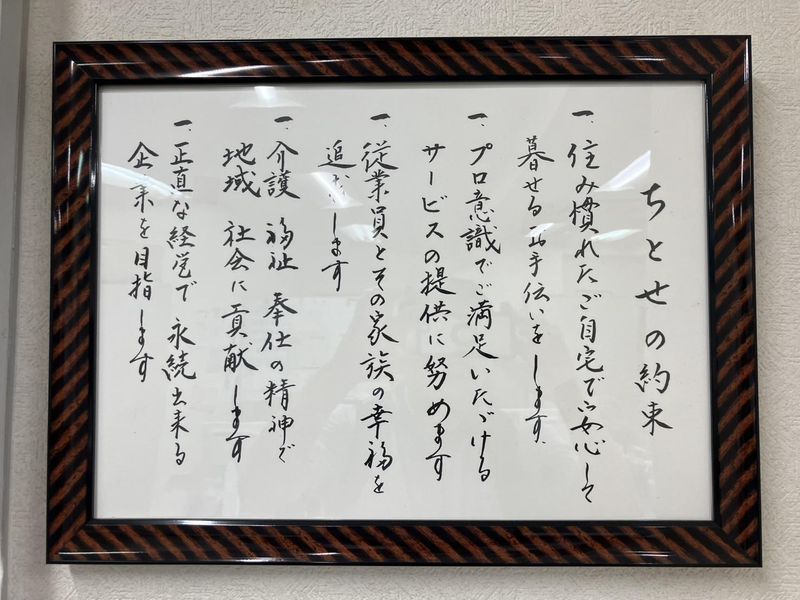 ちとせの約束
一、住み慣れたご自宅で安心して
暮せるお手伝いをします。
一、プロ意識でご満足いただける
サービスの提供に努めます
一、従業員とその家族の幸福を
追求します
一、介護 福祉 奉仕の精神で
地域 社会に貢献します
一、正直な経営で永続出来る
企業を目指します